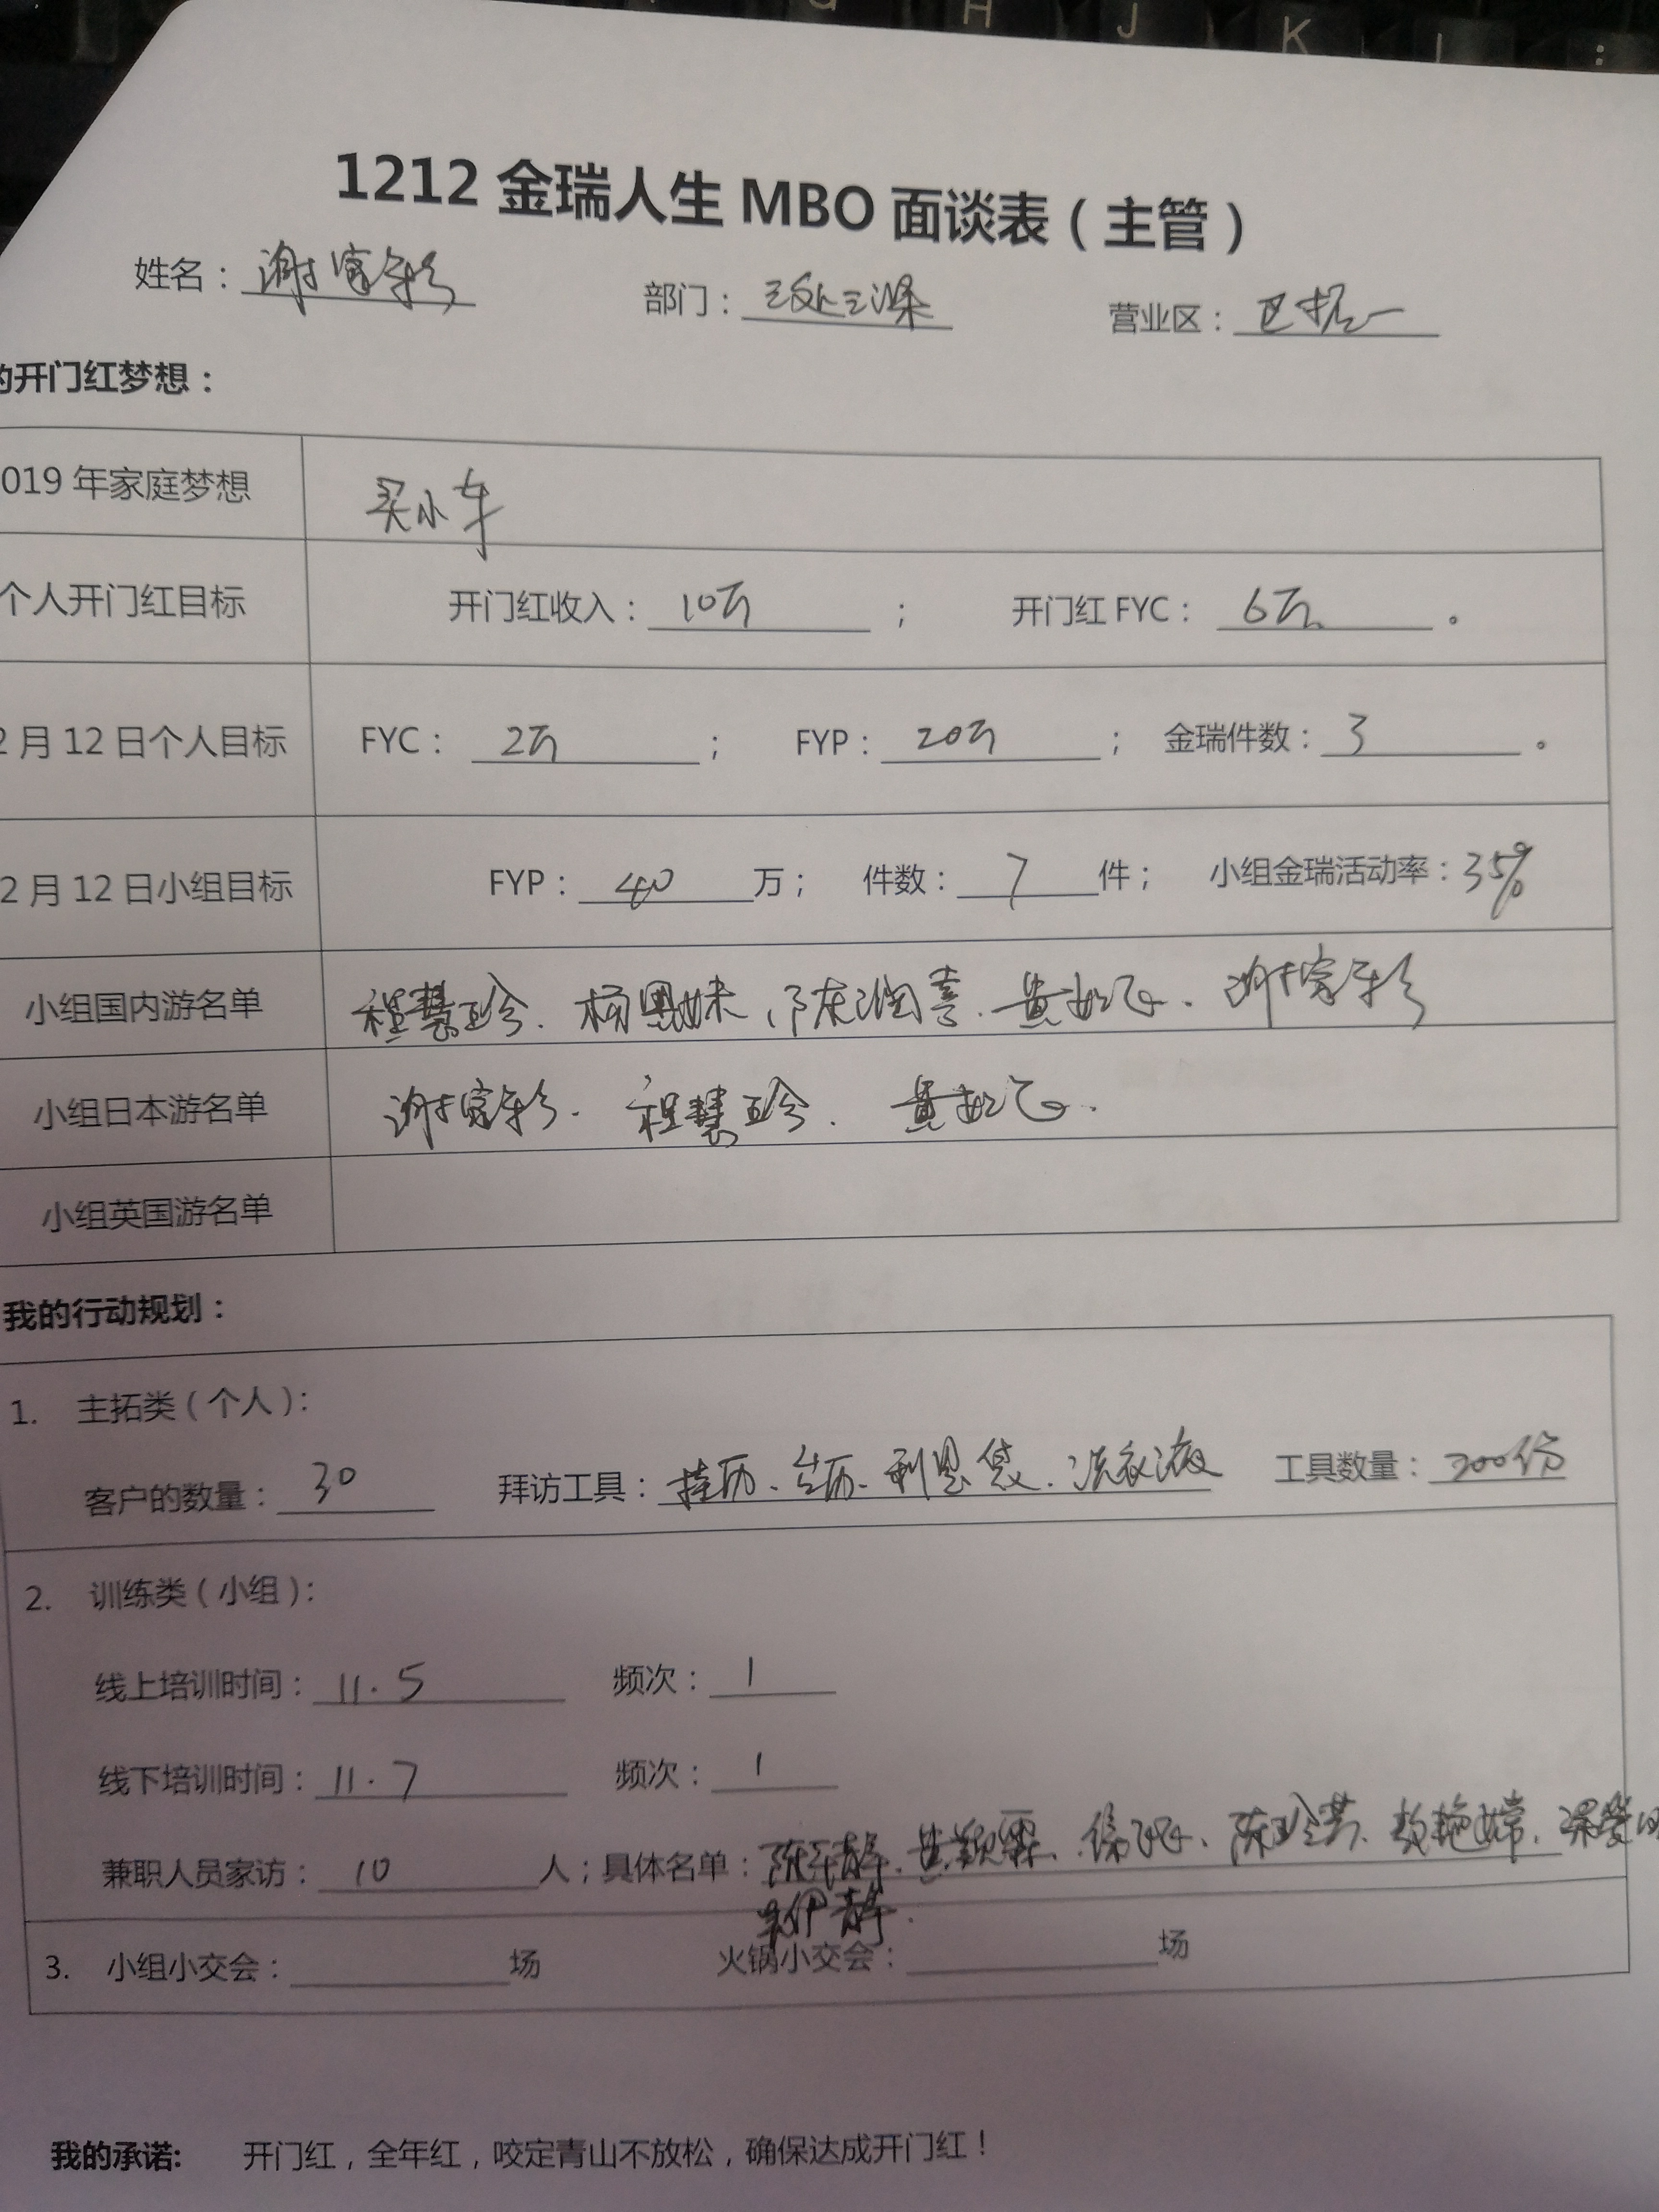 G H J K L ;
1212 金瑞人生 MBO 面谈表（主管）
姓名：谢家彩 部门：三处三课 营业区：巴拓一
的开门红梦想：
019 年家庭梦想 买小车
个人开门红目标 开门红收入：10万 ； 开门红 FYC：6万 。
2 月 12 日个人目标 FYC：2万 ； FYP：20万 ； 金瑞件数：3 。
2 月 12 日小组目标 FYP：40 万； 件数：7 件； 小组金瑞活动率：35%
小组国内游名单 程慧珍、杨恩妹、陈润喜、黄 谢家彩
小组日本游名单 谢家彩、程慧珍、黄
小组英国游名单
我的行动规划：
1. 主拓类（个人）：
客户的数量：30 拜访工具：挂历、台历、利是袋、洗衣液 工具数量：200份
2. 训练类（小组）：
线上培训时间：11.5 频次：1
线下培训时间：11.7 频次：1
兼职人员家访：10 人；具体名单：黄颖霖、陈
伊静
3. 小组小交会： 场 火锅小交会： 场
我的承诺： 开门红，全年红，咬定青山不放松，确保达成开门红！